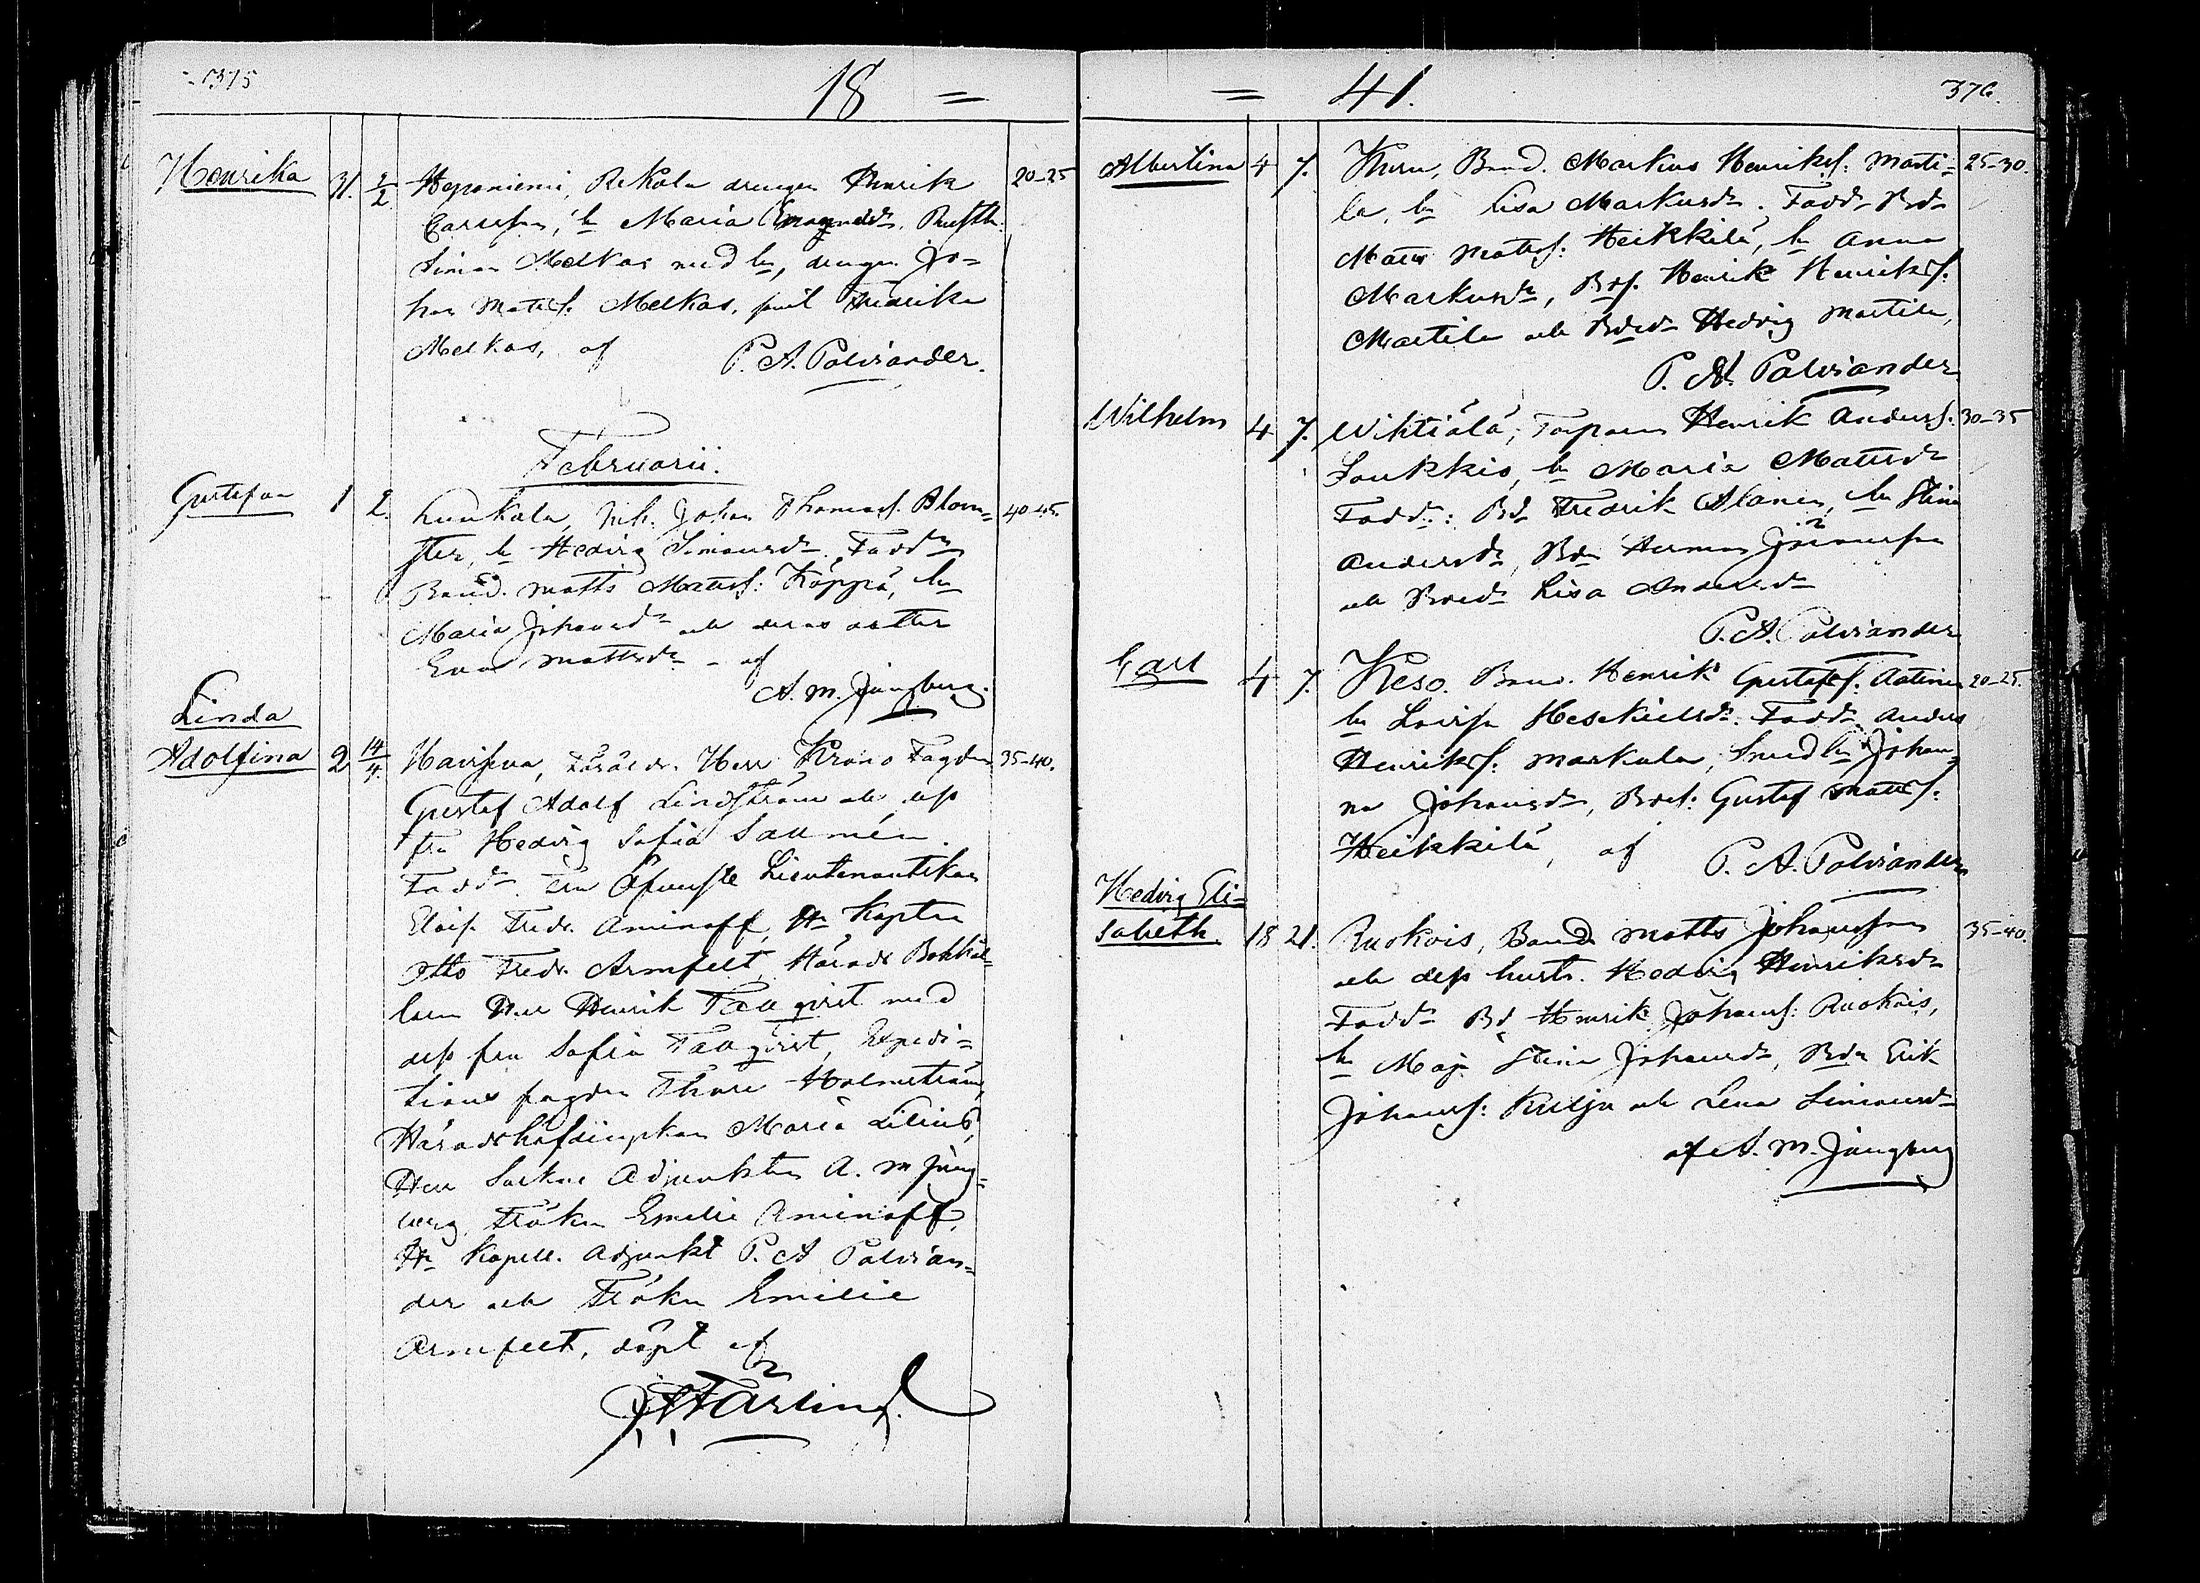 375
18 =
Henrika 31. 2/2 Heponiemi, Rekola drengen Henrik 20-25
Carlsson, h Maria Enogsdr. Rusth.
Simon Melkas med h, drengen Jo=
han Matts. Melkas, pig Fredrika
Melkas, af P. A. Polviander.
Februarii.
Gustafva 1 2. Kunkala, Inh. Johan Thomass. Blom= 40-45.
ster, h Hedvig Simonsdr. Fadd.
Bond. Matts Matts: Köppä, h
Maria Johansdr och deras dotter
Eva Mattsdr - af
A. M. Jungberg.
Linda
Adolfina 2 14/4 Haviseva, Föräldr. Herr Krono Fogden 35-40.
Gustaf Adolf Lindström och dess
fru Hedvig Sofia Sallmén
Fadd. Fru Öfverste Lieutenantskan
Lovis. Fredr. Aminoff, Hr Kapten
Otto Fredr. Armfelt, Härads Bokhål=
laren Herr Henrik Tallqvist med
dess fru Sofia Tallqvist, Expedi=
tions fogden Thure Holmström,
Häradshöfdingskan Maria Lilius,
Herr Sockne Adjunkten A. M Jung=
berg, Fröken Emelie Aminoff,
Hr Kapell. Adjunkt P. A Polvian=
der och Fröken Emilie
Armfelt, döpt af
Färling.
= 41. 376.
Albertina 4 7. Thuru, Bond. Markus Henriks: Marti= 25-30.
la, h Lisa Markusdr. Fadd. Bd
Matts Matts: Heikkilä, h Anna
Markusdr, Bds. Henrik Henriks:
Martila och Bdr Hedvig Martila,
P. A. Polviander
Wilhelm 4 7. Wihtiälä, Torparen Henrik Anders. 30-35
Loukkio, h Maria Mattsdr
Fadd.: Bd Fredrik Alanen, h Stina
Andersdr, Bdn Herman Göransson
och Lisa Andersdr
P. A. Polviander
Carl 4 7. Keso. Bond. Henrik Gustafs: Antina 20-25.
h Lovisa Heskielsdr. Fadd. Anders
Henriks: Markula, Smed h Johan=
na Johansdr, Gustaf Matts:
Heikkilä, af P. A. Polviander
Hedvig Eli=
sabeth 18 21. Ruokois, Bond. Matts Johansson 35-40.
och dess hustr. Hedvig Henriksdr
Fadd. Bd Henrik Johans: Ruokois,
h Maja Stina Johansdr, Bdn Erik
Johans: Knilja och Lena Simonsdr
af A. M. Jungberg